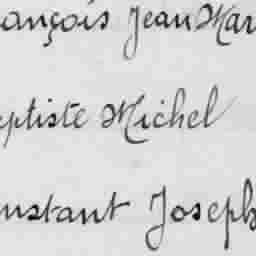 ançois Jean Mar
ptiste Michel
nstant Joseph